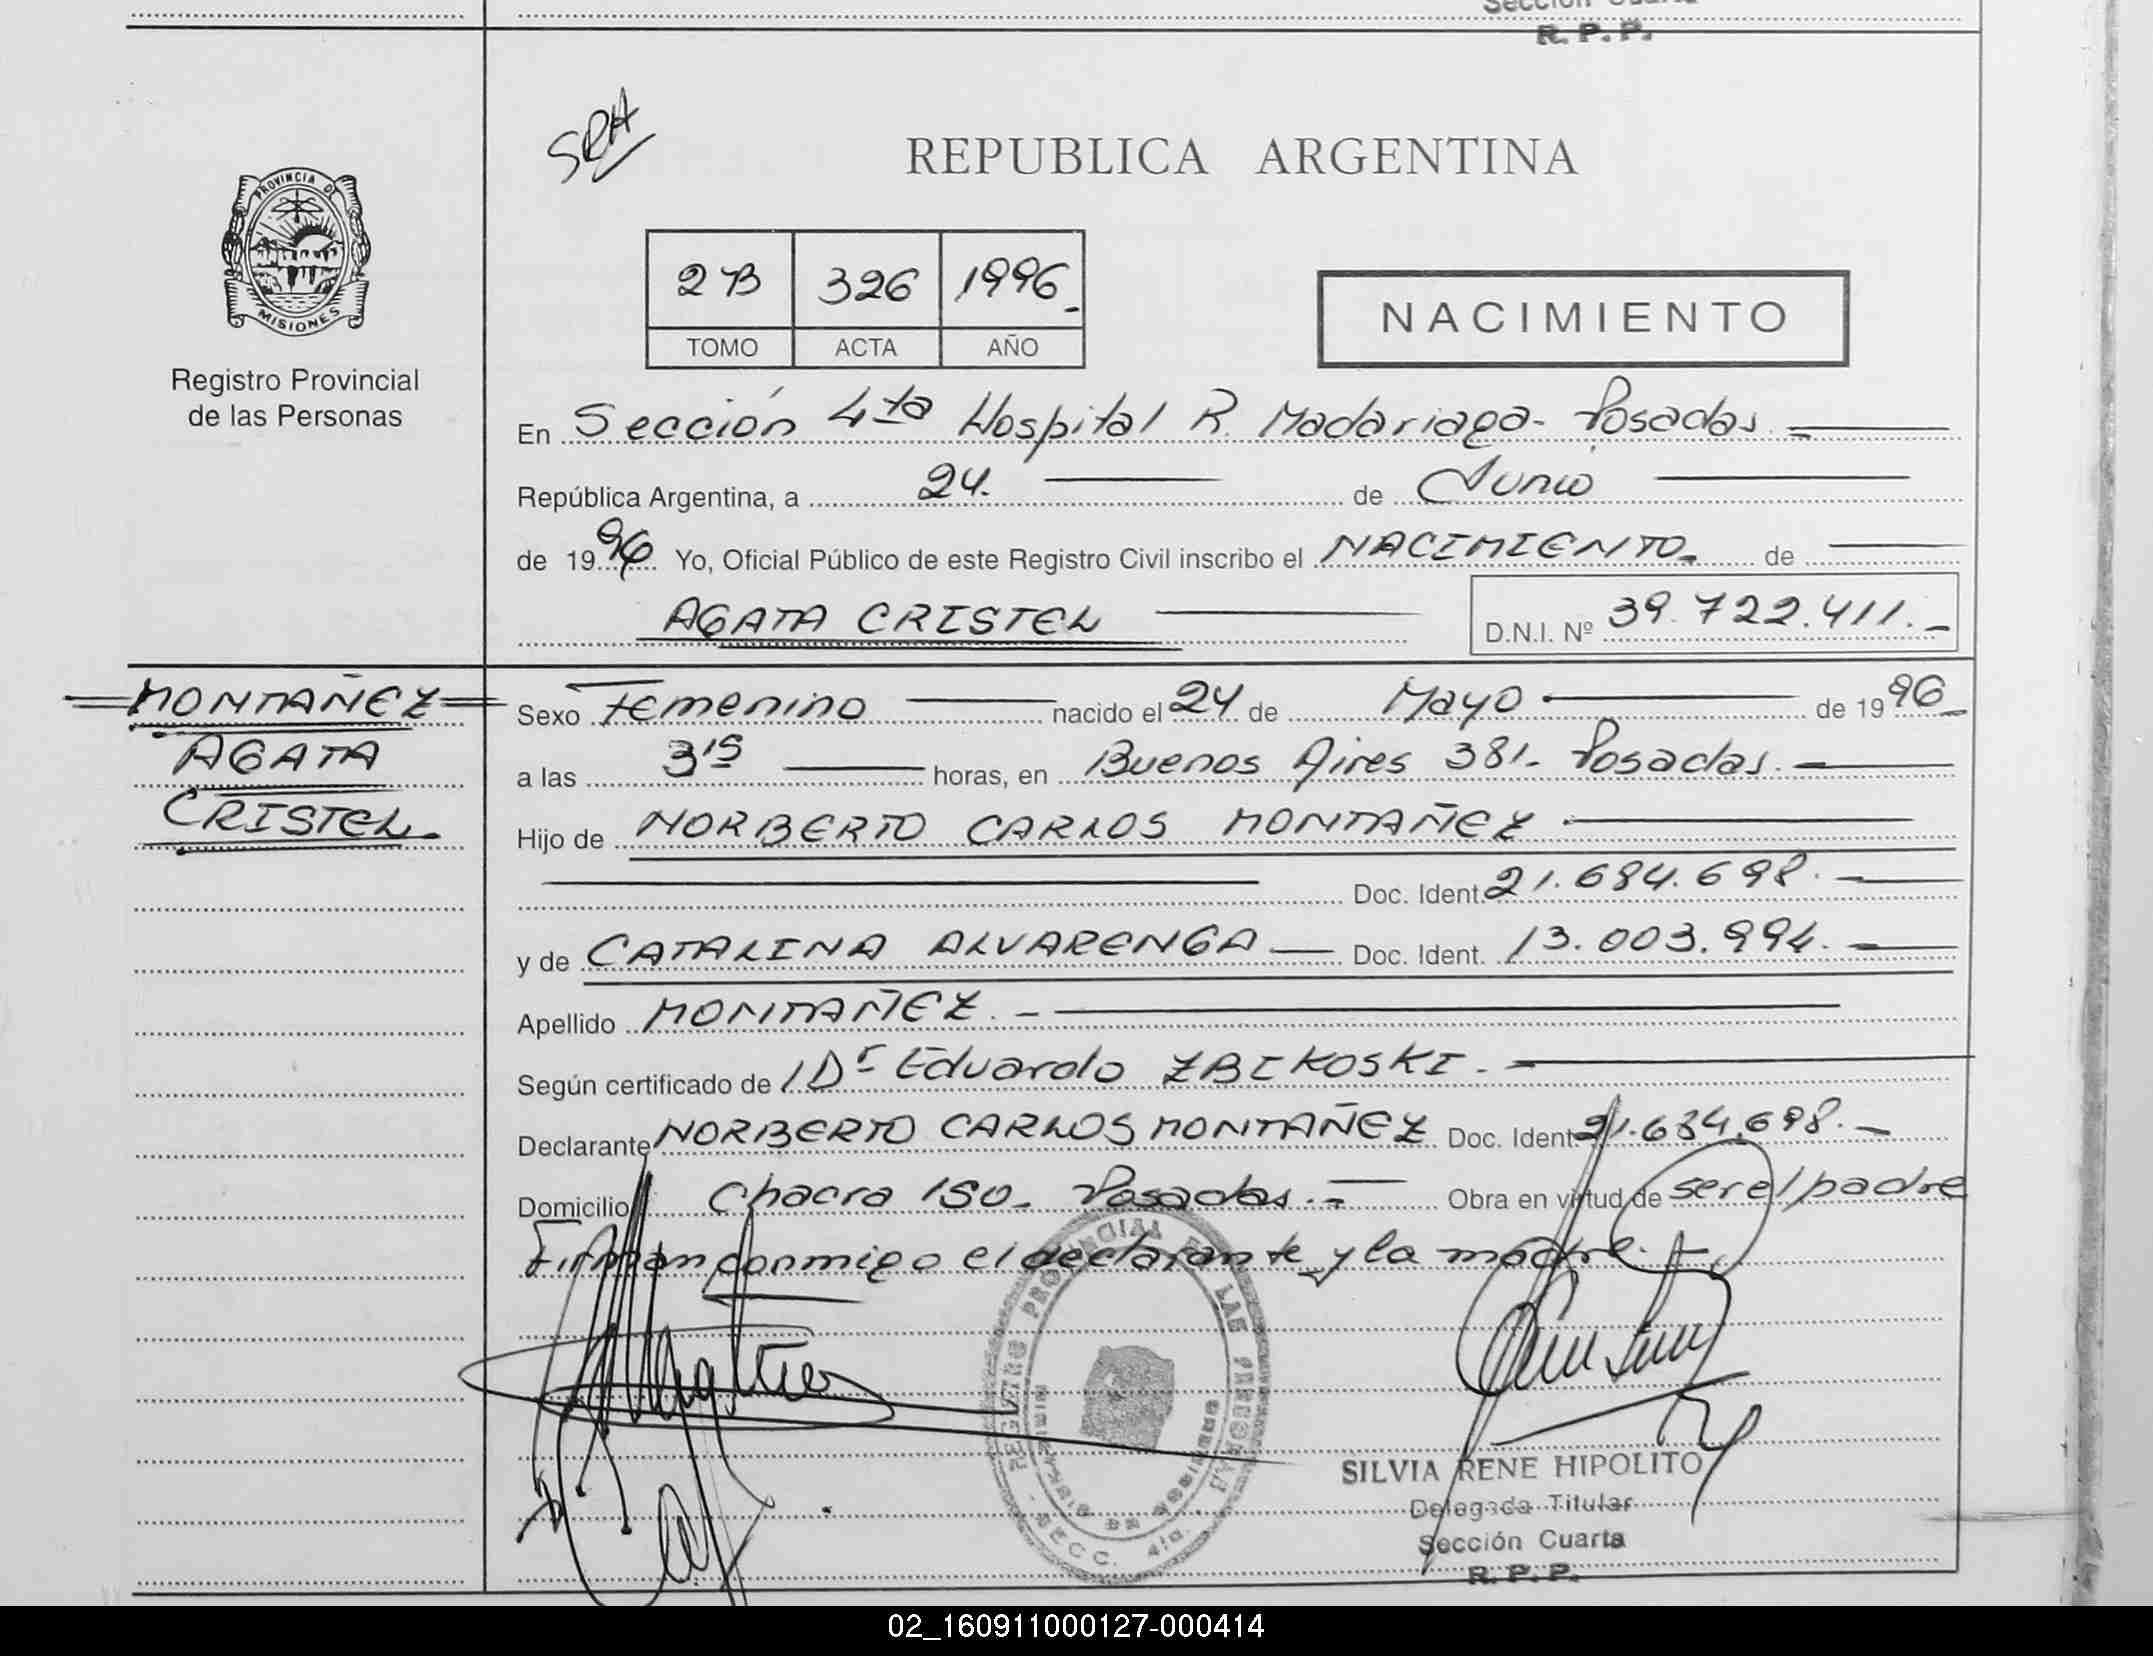 Sección Cuarta
R. P. P.
SRH
REPUBLICA ARGENTINA
PROVINCIA DE
MISIONES
2 B 326 1996
TOMO ACTA AÑO
NACIMIENTO
Registro Provincial
de las Personas
En Sección 4ta Hospital R. Madariaga - Posadas.
República Argentina, a 24. de Junio
de 1996 Yo, Oficial Público de este Registro Civil inscribo el NACIMIENTO. de
AGATA CRISTEL D.N.I. Nº 39.722.411.
MONTAÑEZ
AGATA
CRISTEL
Sexo Femenino nacido el 24 de Mayo de 1996
a las 3 15 horas, en Buenos Aires 381. Posadas.
Hijo de NORBERTO CARLOS MONTAÑEZ
Doc. Ident. 21.684.698.
y de CATALINA ALVARENGA Doc. Ident. 13.003.994.
Apellido MONTAÑEZ.
Según certificado de Dr Eduardo ZBIKOSKI.
Declarante NORBERTO CARLOS MONTAÑEZ Doc. Ident. 21.684.698.
Domicilio Chacra 150. Posadas. Obra en virtud de ser el padre
Firman conmigo el declarante y la madre.
REGISTRO PROVINCIAL DE LAS PERSONAS
SECC. 4ta.
SILVIA RENE HIPOLITO
Delegada Titular
Sección Cuarta
R. P. P.
02_160911000127-000414